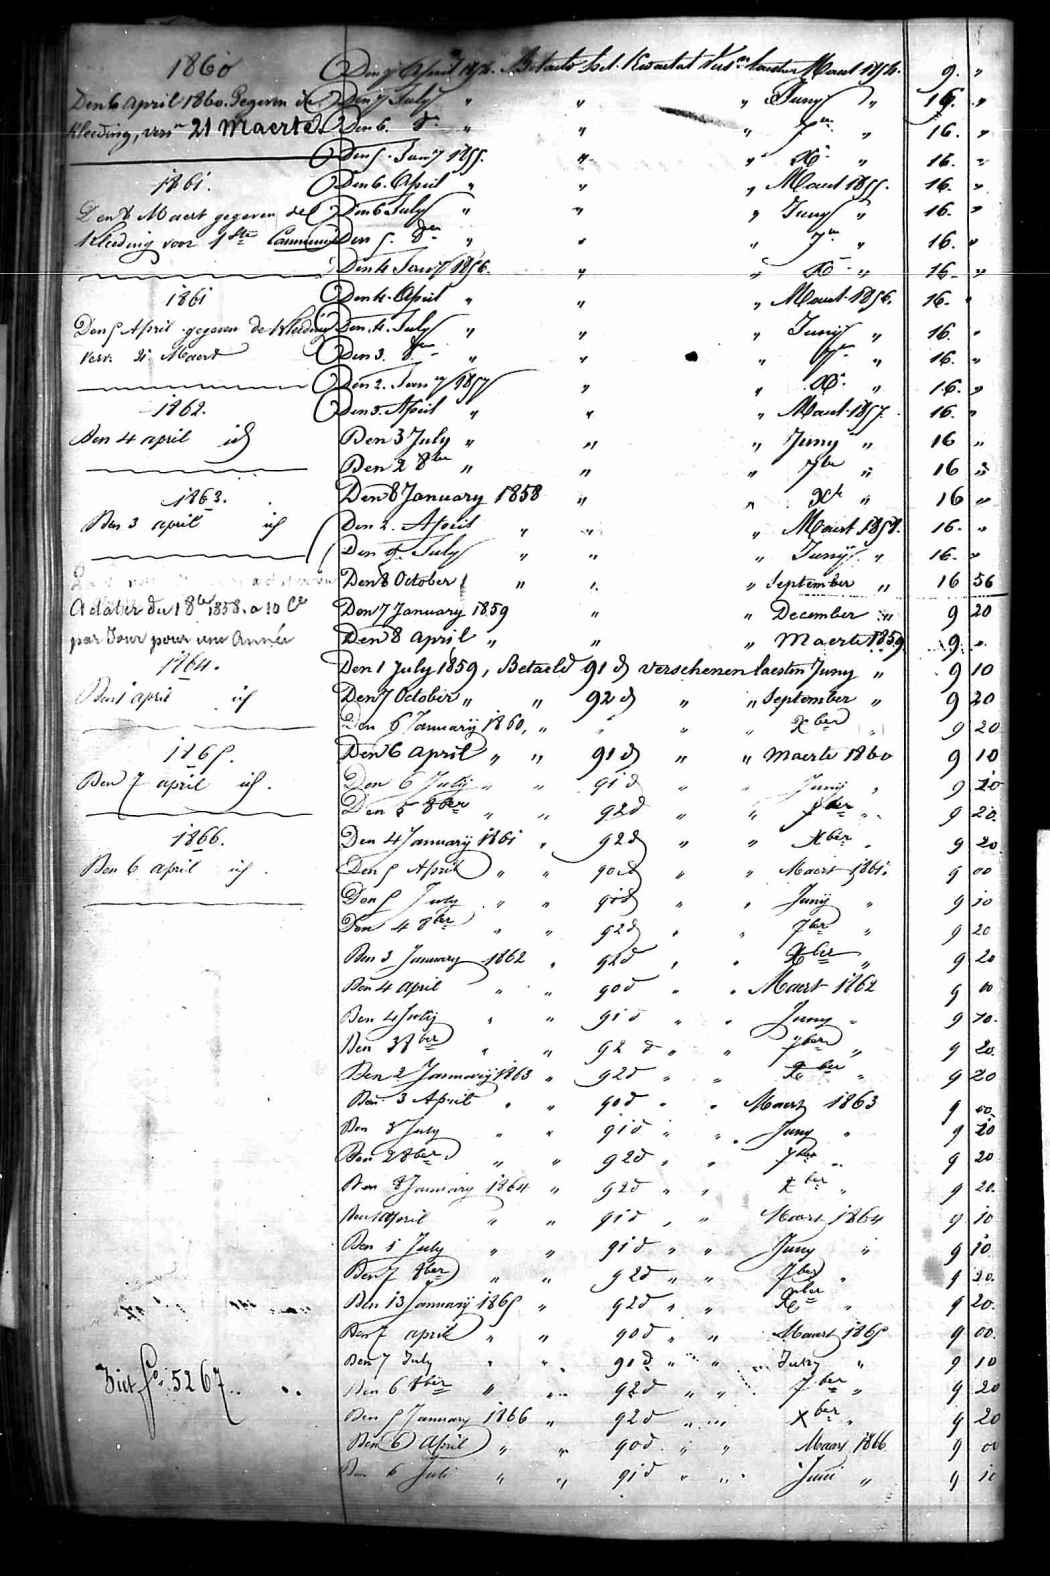 1860
Den 6 April 1860. Gegeven de
Kleeding, vers.n 21 Maerte
1861.
Den 8 Maert gegeven de
Kleeding voor 1ste Communie
1861
Den 5 April gegeven de Kleeding
vers: 21 Maert
1862.
Den 4 april id
1863.
Den 3 april id
A dater du 1 8bre 1858. a 10 Ces
par Jour pour une Année
1864.
Den 1 april id
1865.
Den 7 april id.
1866.
Den 6 april id.
Ziet fo. 5267.
Den 7 April 1854. Betaelt het Kwartal Maert 1854. 9. "
Den 7 July " " " Juny " 16. "
Den 6. 8re " " " 7re " 16. "
Den 5. Jany 1855. " " Xr " 16. "
Den 6. April " " " Maert 1855. 16. "
Den 6 July " " " Juny " 16. "
Den 5. 8re " " " 7re " 16. "
Den 4 Jany 1856. " " Xr " 16. "
Den 4. April " " " Maert 1856. 16. "
Den 4. July " " " Juny " 16. "
Den 3. 8re " " " 7re " 16. "
Den 2. Jany 1857 " " Xr " 16. "
Den 3. April " " " Maert 1857. 16. "
Den 3 July " " " Juny " 16 "
Den 2 8bre " " " 7bre " 16 "
Den 8 January 1858 " " Xr " 16 "
Den 2. April " " " Maert 1858. 16. "
Den 9. July " " " Juny " 16. "
Den 8 October " " " September " 16 56
Den 7 January 1859 " " December " 9 20
Den 8 April " " " Maerte 1859 9 "
Den 1 July 1859, Betaeld 91 d verschenen laesten Juny " 9 10
Den 7 October " " 92 d " " September " 9 20
Den 6 Januarij 1860, " " " " Xber " 9 20
Den 6 April " " 91 d " " Maerte 1860 9 10
Den 6 July " " 91 d " " Junij " 9 10
Den 5 8ber " " 92 d " " 7ber " 9 20.
Den 4 Januarij 1861 " 92 d " " Xber " 9 20
Den 5 April " " 90 d " " Maert 1861. 9 00
Den 5 July " " 91 d " " Junij " 9 10
Den 4 8ber " " 92 d " " 7ber " 9 20
Den 3 January 1862 " 92 d " " Xber " 9 20
Den 4 april " " 90 d " " Maert 1862 9 00
Den 4 July " " 91 d " " Juny " 9 10.
Den 3 8ber " " 92 d " " 7ber " 9 20.
Den 2 Januarij 1863 " 92 d " " Xber " 9 20
Den 3 April " " 90 d " " Maert 1863 9 00.
Den 3 July " " 91 d " " Juny " 9 10
Den 2 8ber " " 92 d " " 7ber " 9 20
Den 8 January 1864 " 92 d " " Xber " 9 20.
Den 1 April " " 91 d " " Maert 1864 9 10
Den 1 July " " 91 d " " Juny " 9 10.
Den 7 8ber " " 92 d " " 7ber " 9 20.
Den 13 Januarij 1865 " 92 d " " Xber " 9 20.
Den 7 april " " 90 d " " Maert 1865 9 00.
Den 7 July " " 91 d " " July " 9 10
Den 6 8ber " " 92 d " " 7ber " 9 20
Den 5 January 1866 " 92 d " " Xber " 9 20
Den 6 April " " 90 d " " Maert 1866 9 00
Den 6 Juli " " 91 d " " Juni " 9 10